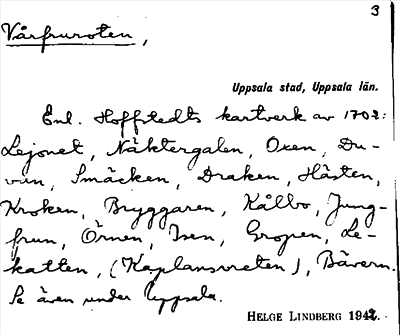 3
Vårfruroten,
Uppsala stad, Uppsala län.
Enl. Hoffstedts kartverk av 1702:
Lejonet, Näktergalen, Oxen, Du-
van, Smäcken, Draken, Hästen,
Kroken, Bryggaren, Kålbo, Jung-
frun, Örnen, Isen, Gropen, Le-
katten, (Kaplansvreten), Bävern.
Se även under Uppsala.
HELGE LINDBERG 1942.